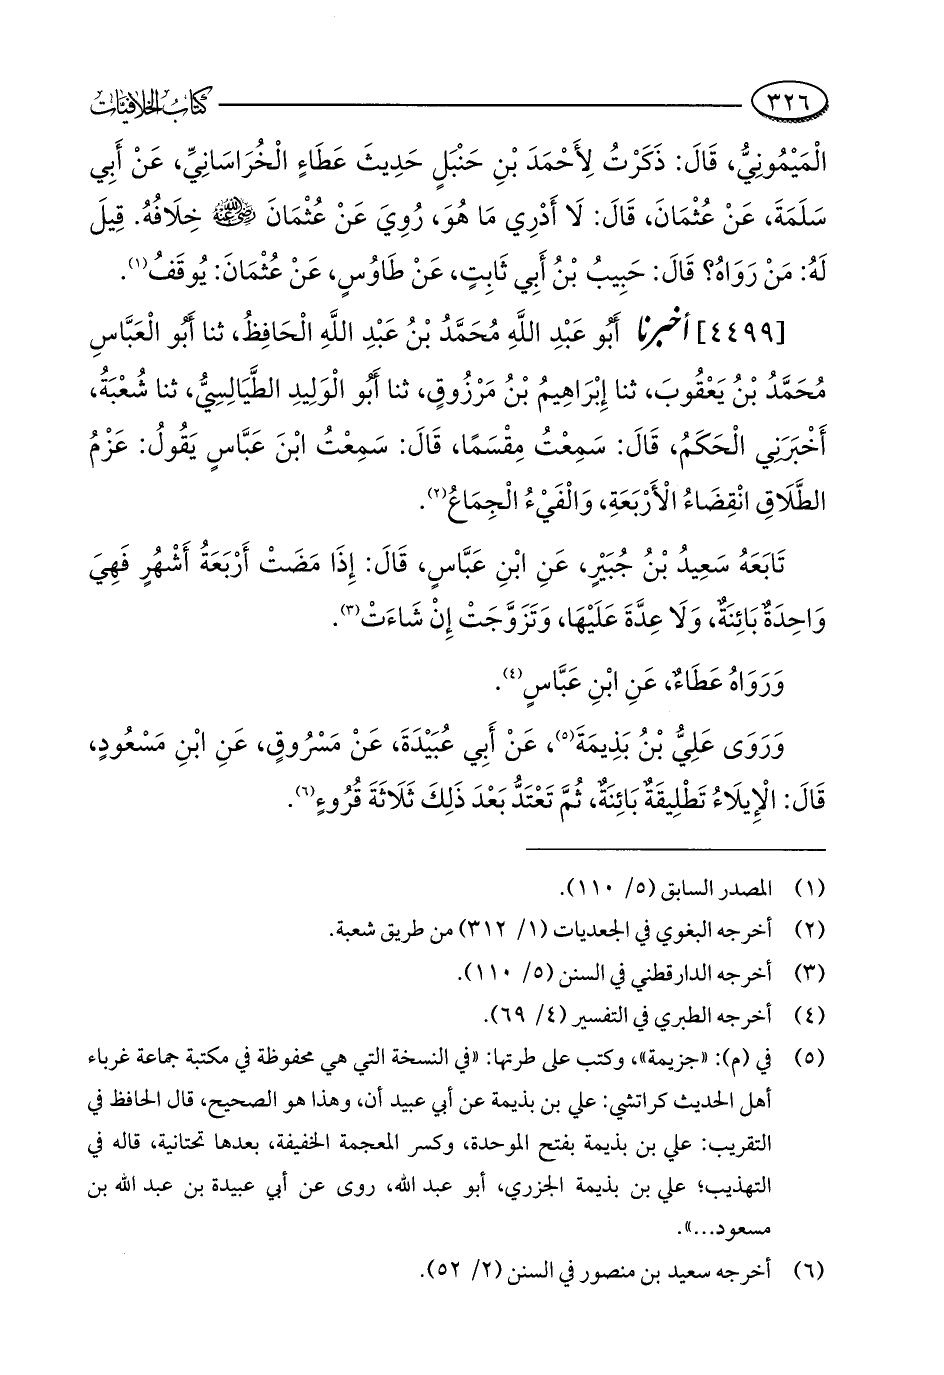 ٣٢٦ كتاب الخلافيات
الْمَيْمُونِيُّ، قَالَ: ذَكَرْتُ لِأَحْمَدَ بْنِ حَنْبَلٍ حَدِيثَ عَطَاءٍ الْخُرَاسَانِيِّ، عَنْ أَبِي
سَلَمَةَ، عَنْ عُثْمَانَ، قَالَ: لَا أَدْرِي مَا هُوَ، رُوِيَ عَنْ عُثْمَانَ رضي الله عنه خِلَافُهُ. قِيلَ
لَهُ: مَنْ رَوَاهُ؟ قَالَ: حَبِيبُ بْنُ أَبِي ثَابِتٍ، عَنْ طَاوُسٍ، عَنْ عُثْمَانَ: يُوقَفُ(١).
[٤٤٩٩] أخبرنا أَبُو عَبْدِ اللَّهِ مُحَمَّدُ بْنُ عَبْدِ اللَّهِ الْحَافِظُ، ثنا أَبُو الْعَبَّاسِ
مُحَمَّدُ بْنُ يَعْقُوبَ، ثنا إِبْرَاهِيمُ بْنُ مَرْزُوقٍ، ثنا أَبُو الْوَلِيدِ الطَّيَالِسِيُّ، ثنا شُعْبَةُ،
أَخْبَرَنِي الْحَكَمُ، قَالَ: سَمِعْتُ مِقْسَمًا، قَالَ: سَمِعْتُ ابْنَ عَبَّاسٍ يَقُولُ: عَزْمُ
الطَّلَاقِ انْقِضَاءُ الْأَرْبَعَةِ، وَالْفَيْءُ الْجِمَاعُ(٢).
تَابَعَهُ سَعِيدُ بْنُ جُبَيْرٍ، عَنِ ابْنِ عَبَّاسٍ، قَالَ: إِذَا مَضَتْ أَرْبَعَةُ أَشْهُرٍ فَهِيَ
وَاحِدَةٌ بَائِنَةٌ، وَلَا عِدَّةَ عَلَيْهَا، وَتَزَوَّجَتْ إِنْ شَاءَتْ(٣).
وَرَوَاهُ عَطَاءٌ، عَنِ ابْنِ عَبَّاسٍ(٤).
وَرَوَى عَلِيُّ بْنُ بَذِيمَةَ(٥)، عَنْ أَبِي عُبَيْدَةَ، عَنْ مَسْرُوقٍ، عَنِ ابْنِ مَسْعُودٍ،
قَالَ: الْإِيلَاءُ تَطْلِيقَةٌ بَائِنَةٌ، ثُمَّ تَعْتَدُّ بَعْدَ ذَلِكَ ثَلَاثَةَ قُرُوءٍ(٦).
(١) المصدر السابق (٥/ ١١٠).
(٢) أخرجه البغوي في الجعديات (١/ ٣١٢) من طريق شعبة.
(٣) أخرجه الدارقطني في السنن (٥/ ١١٠).
(٤) أخرجه الطبري في التفسير (٤/ ٦٩).
(٥) في (م): «جزيمة»، وكتب على طرتها: «في النسخة التي هي محفوظة في مكتبة جماعة غرباء
أهل الحديث كراتشي: علي بن بذيمة عن أبي عبيد أن، وهذا هو الصحيح، قال الحافظ في
التقريب: علي بن بذيمة بفتح الموحدة، وكسر المعجمة الخفيفة، بعدها تحتانية، قاله في
التهذيب؛ علي بن بذيمة الجزري، أبو عبد الله، روى عن أبي عبيدة بن عبد الله بن
مسعود...».
(٦) أخرجه سعيد بن منصور في السنن (٢/ ٥٢).